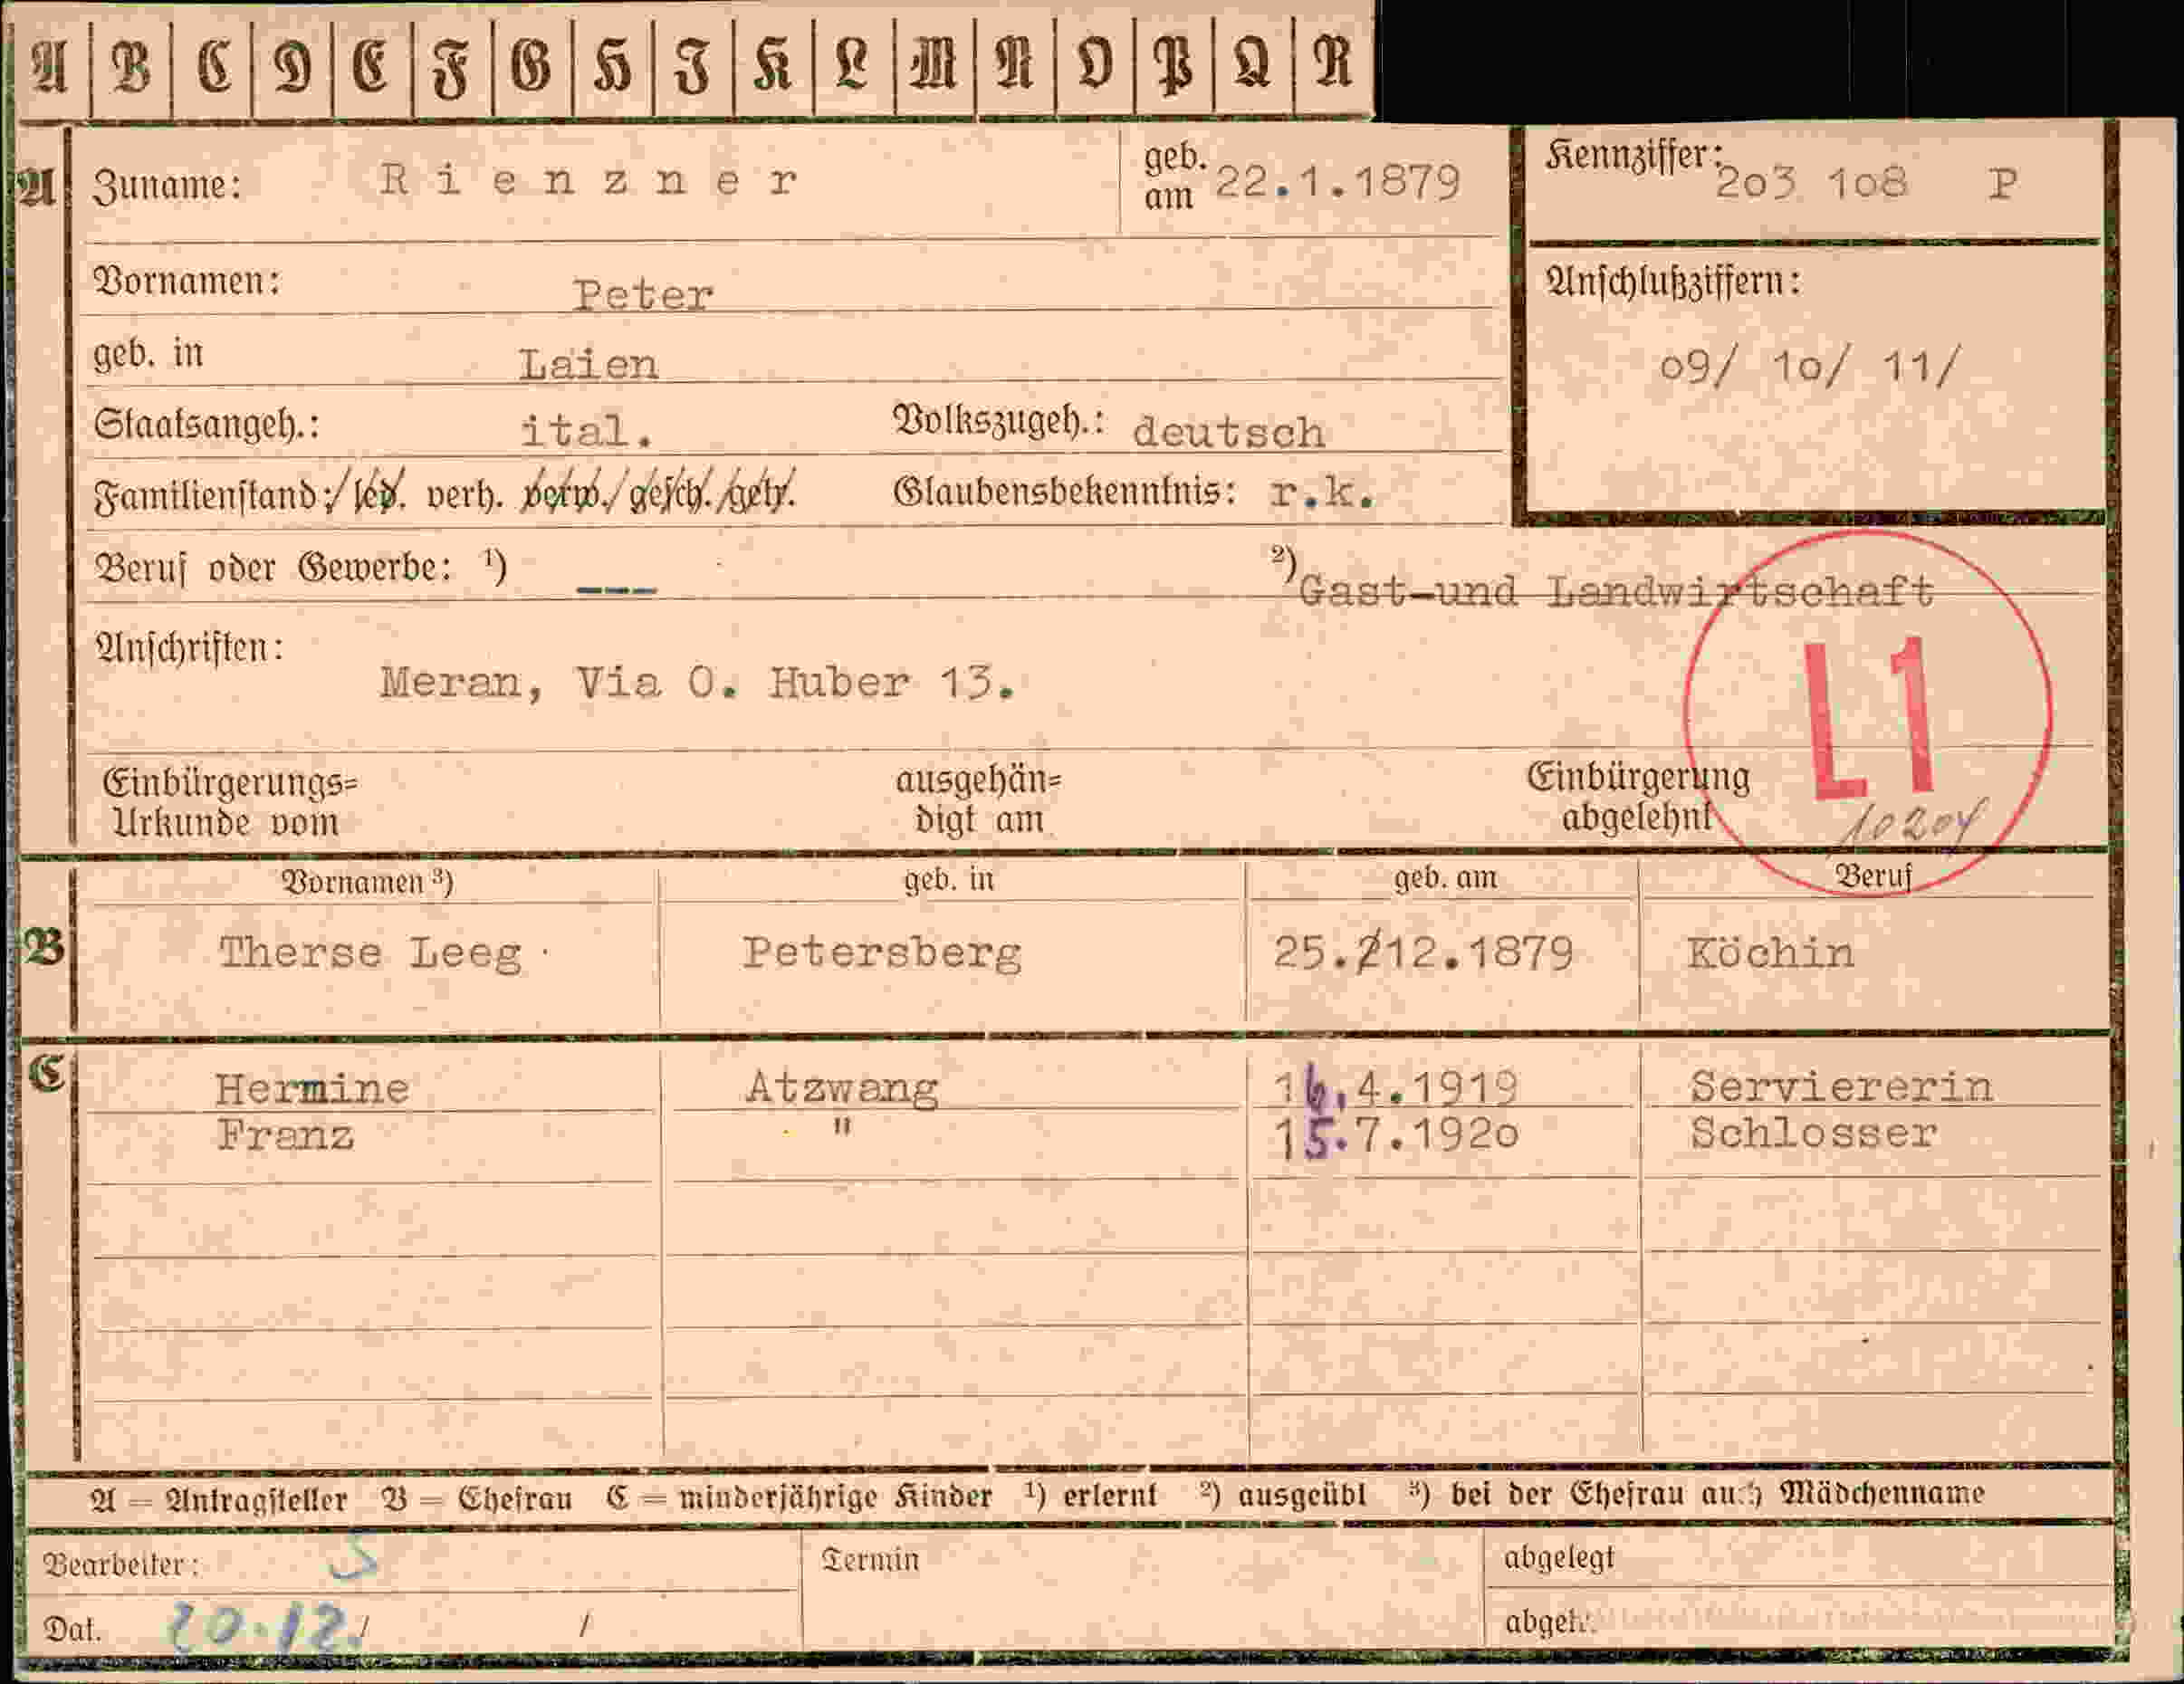 A B C D E F G H I K L M N O P Q R
A Zuname: Rienzner geb. am 22.1.1879 Kennziffer: 203 108 P
Vornamen: Peter Anschlußziffern:
geb. in Laien 09/ 10/ 11/
Staatsangeh.: ital. Volkszugeh.: deutsch
Familienstand: led. verh. verw. gesch. getr. Glaubensbekenntnis: r.k.
Beruf oder Gewerbe: 1) --- 2) Gast-und Landwirtschaft
Anschriften:
Meran, Via O. Huber 13.
L1
Einbürgerungs= ausgehän= Einbürgerung
Urkunde vom digt am abgelehnt
Vornamen 3) geb. in geb. am Beruf
B Therse Leeg Petersberg 25.12.1879 Köchin
C Hermine Atzwang 16.4.1919 Serviererin
Franz " 15.7.1920 Schlosser
A = Antragsteller B = Ehefrau C = minderjährige Kinder 1) erlernt 2) ausgeübt 3) bei der Ehefrau auch Mädchenname
Bearbeiter: S Termin abgelegt
Dat. 20.12. / / abgeh.